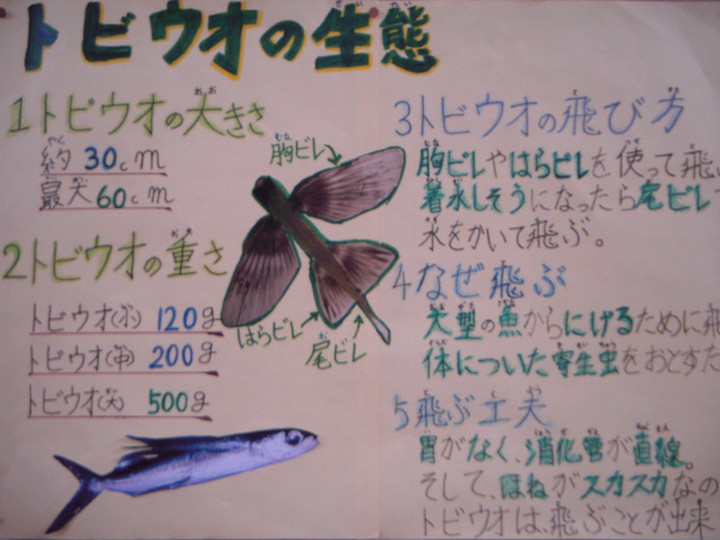 トビウオの生態
1トビウオの大きさ
約 30cm
最大60cm
2トビウオの重さ
トビウオ(小) 120g
トビウオ(中) 200g
トビウオ(大) 500g
胸ビレ
はらビレ
尾ビレ
3トビウオの飛び方
胸ビレやはらビレを使って飛
着水しそうになったら尾ビレ
水をかいて飛ぶ。
4なぜ飛ぶ
大型の魚からにげるために飛
体についた寄生虫をおとすた
5飛ぶ工夫
胃がなく、消化管が直線。
そして、ほねがスカスカなの
トビウオは、飛ぶことが出来